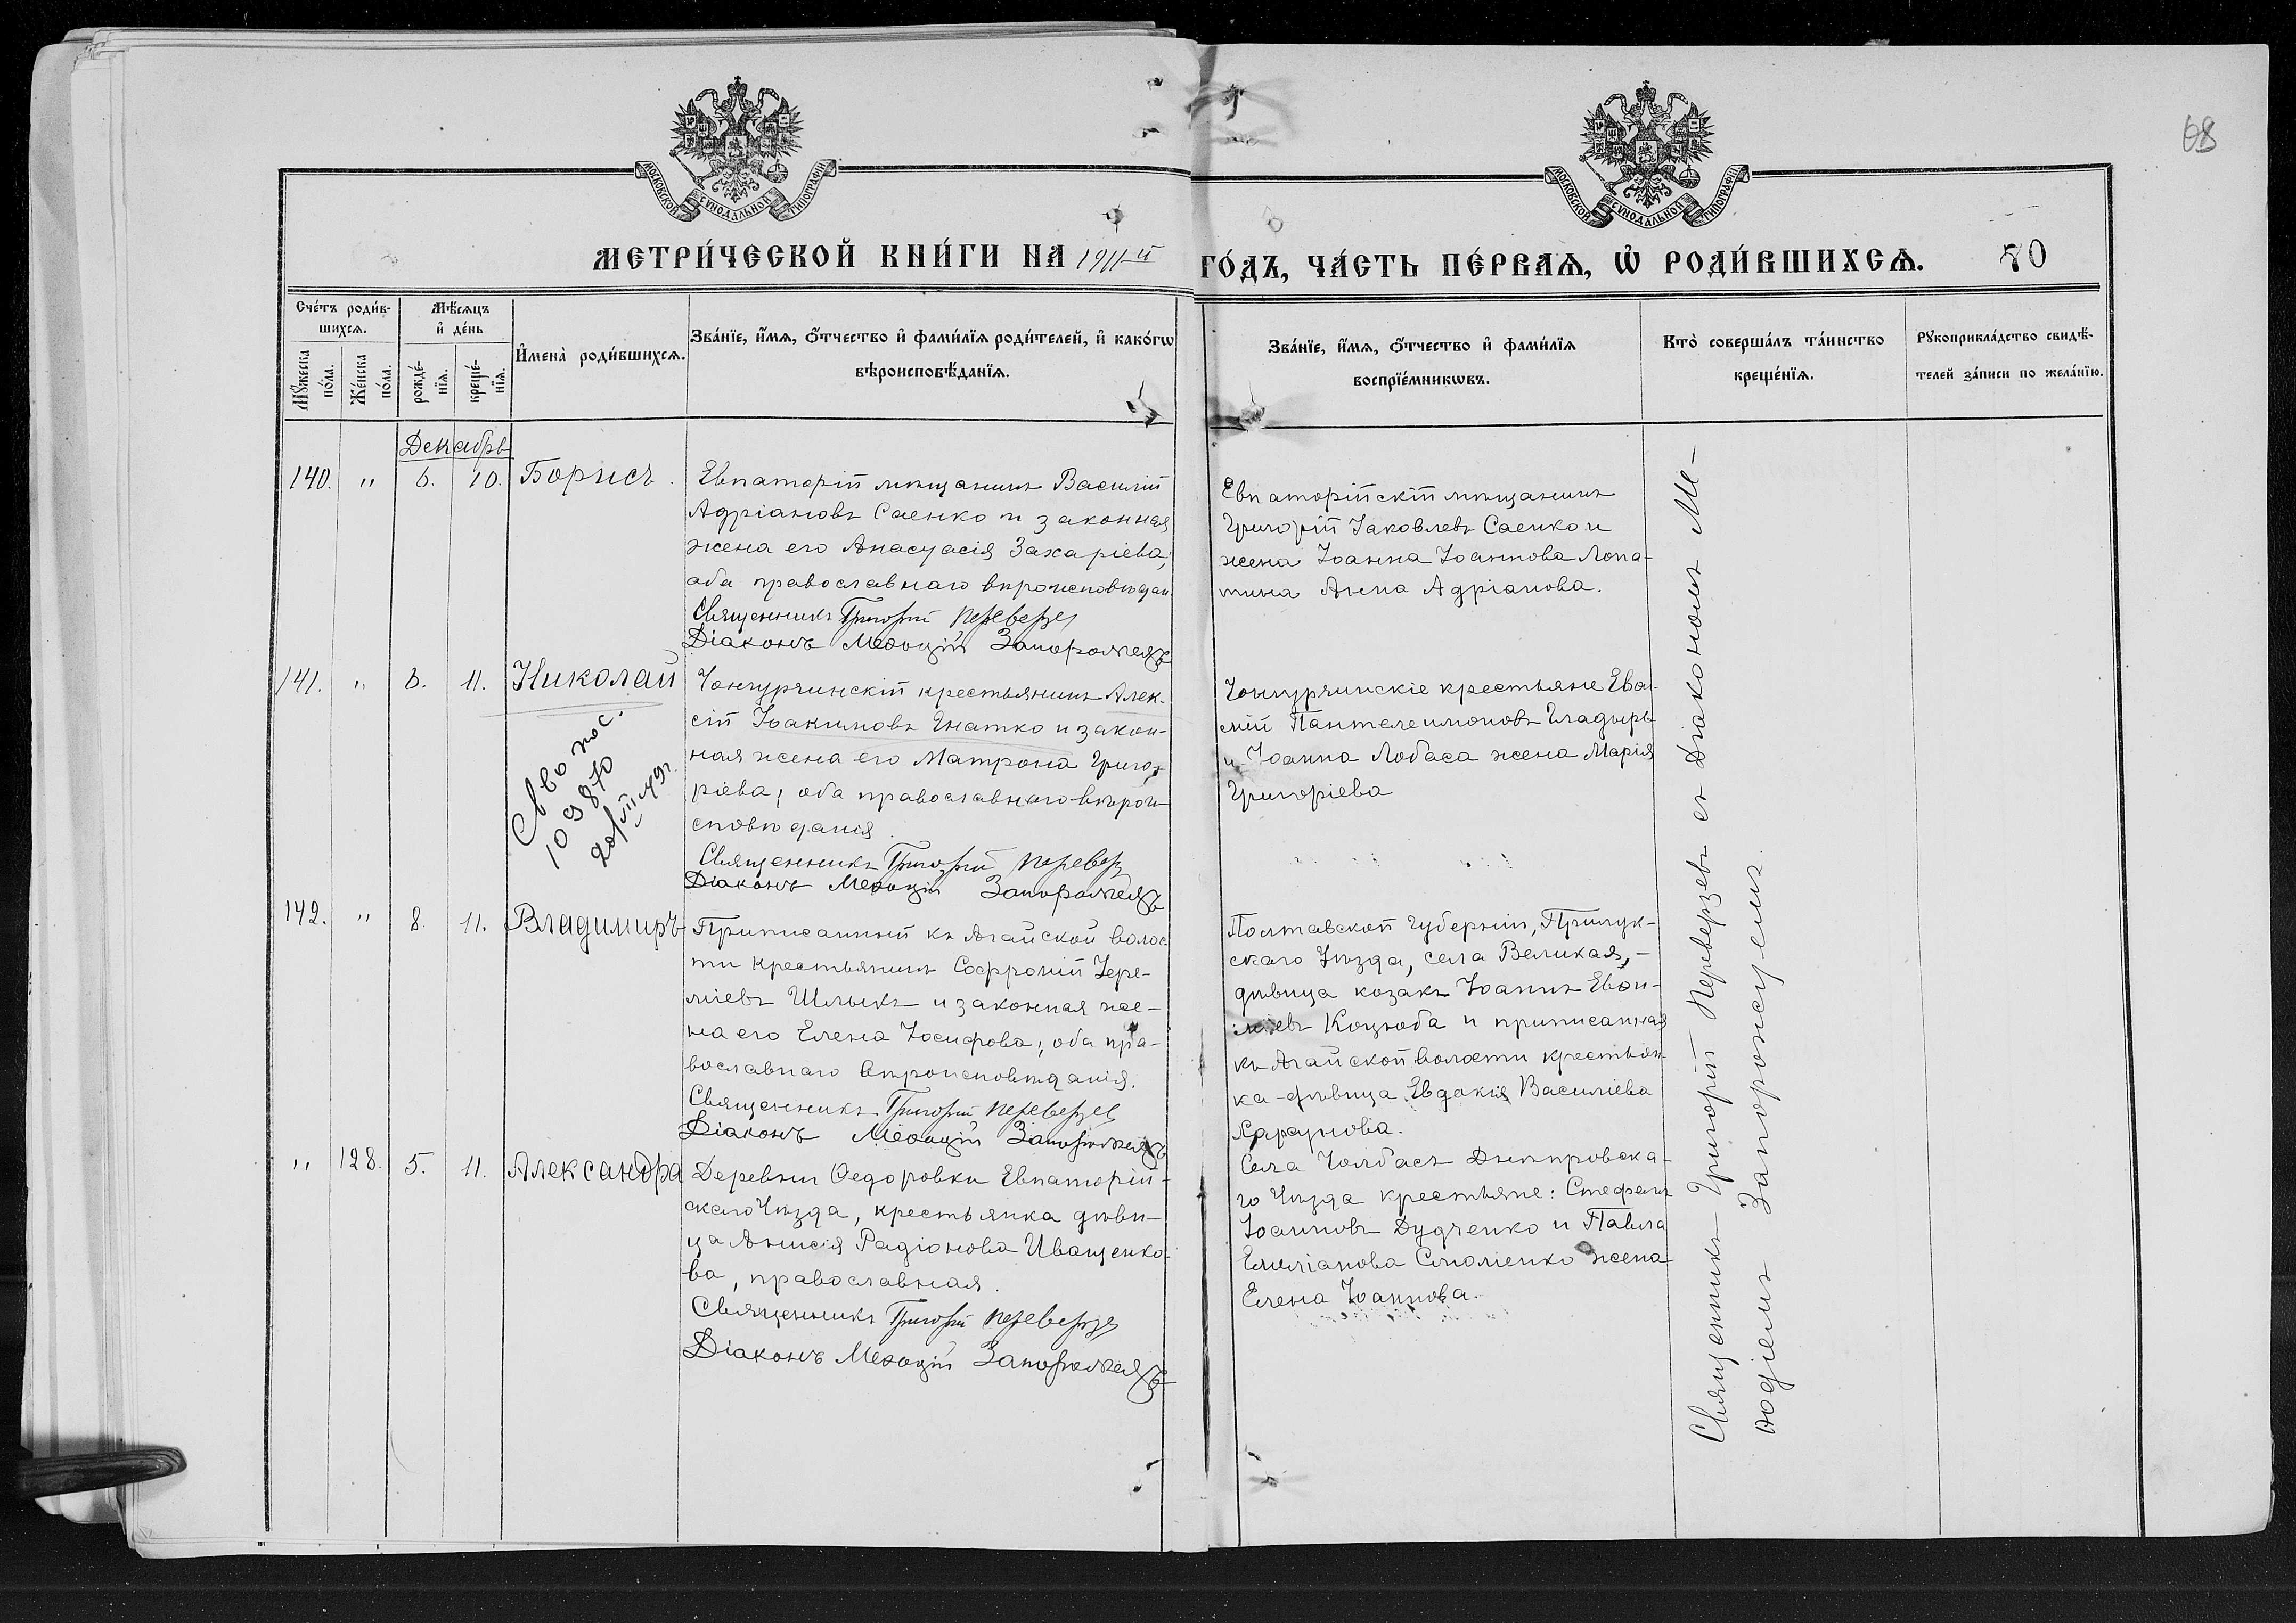 68
МОСКОВСКОЙ СѴНОДАЛЬНОЙ ТИПОГРАФІИ
МОСКОВСКОЙ СѴНОДАЛЬНОЙ ТИПОГРАФІИ
МЕТРИ́ЧЕСКОЙ КНИ́ГИ НА 1911-й ГО́ДЪ, ЧА́СТЬ ПЕ́РВАѦ, Ѡ҆ РОДИ́ВШИХСѦ. 70
Сче́тъ роди́вшихсѧ.
Мꙋ́жеска по́ла.
Же́нска по́ла.
Мѣ́сѧцъ и҆ де́нь
рожде́нїѧ.
креще́нїѧ.
И҆мена̀ роди́вшихсѧ.
Зва́нїе, и҆́мѧ, ѻ҆́тчество и҆ фами́лїѧ роди́телей, и҆ како́гѡ
вѣроисповѣ́данїѧ.
Зва́нїе, и҆́мѧ, ѻ҆́тчество и҆ фами́лїѧ
воспрїе́мникѡвъ.
Кто̀ соверша́лъ та́инство
креще́нїѧ.
Рꙋкоприкла́дство свидѣ́-
телей за́писи по жела́нїю.
Декабрь
140. " 6. 10. Борисъ.
Евпаторій мѣщанинъ Василій
Адріановъ Саенко и законная
жена его Анастасія Захаріева,
оба православнаго вѣроисповѣдан
Священникъ Григорій Переверзе
Діаконъ Меѳодій Запорожецъ
Евпаторійскій мѣщанинъ
Григорій Іаковлевъ Саенко и
жена Іоанна Іоаннова Лопа-
тина Анна Адріанова.
141. " 6. 11. Николай
Св во пос.
10 9870
20/III 49г.
Чонгурчинскій крестьянинъ Алек-
сій Іоакимовъ Гнатко и закон-
ная жена его Матрона Григо-
ріева; оба православнаго вѣрои-
сповѣданія.
Священникъ Григорій Переверз
Діаконъ Меѳодій Запорожецъ
Чонгурчинскіе крестьяне Ева-
мій Пантелеимоновъ Гладырь
и Іоанна Лобаса жена Марія
Григоріева
142. " 8. 11. Владимиръ
Приписанный къ Агайской волос
ти крестьянинъ Софроній Іере-
міевъ Шлыкъ и законная же-
на его Елена Іосифова; оба пра-
вославнаго вѣроисповѣданія.
Священникъ Григорій Переверзев
Діаконъ Меѳодій Запорожецъ
Полтавской Губерніи, Прилук-
скаго Уѣзда, села Великая,-
дѣвица козакъ Іоаннъ
Коцюба и приписанная
къ Агайской волости крестьян
ка-дѣвица Евдокія Василіева
" 128. 5. 11. Александра
Деревни Ѳедоровки Евпаторій-
скаго Уѣзда, крестьянка дѣви-
ца Анисія Радіонова Иващенко-
ва, православная.
Священникъ Григорій Переверзе
Діаконъ Меѳодій Запорожецъ
Села Чолбасъ Днѣпровска-
го Уѣзда крестьяне: Стефанъ
Іоанновъ Дудченко и Павла
Емиліанова Смоліенко жена
Елена Іоаннова.
Священникъ Григорій Переверзевъ съ Діакономъ Ме-
ѳодіемъ Запорожсцемъ.